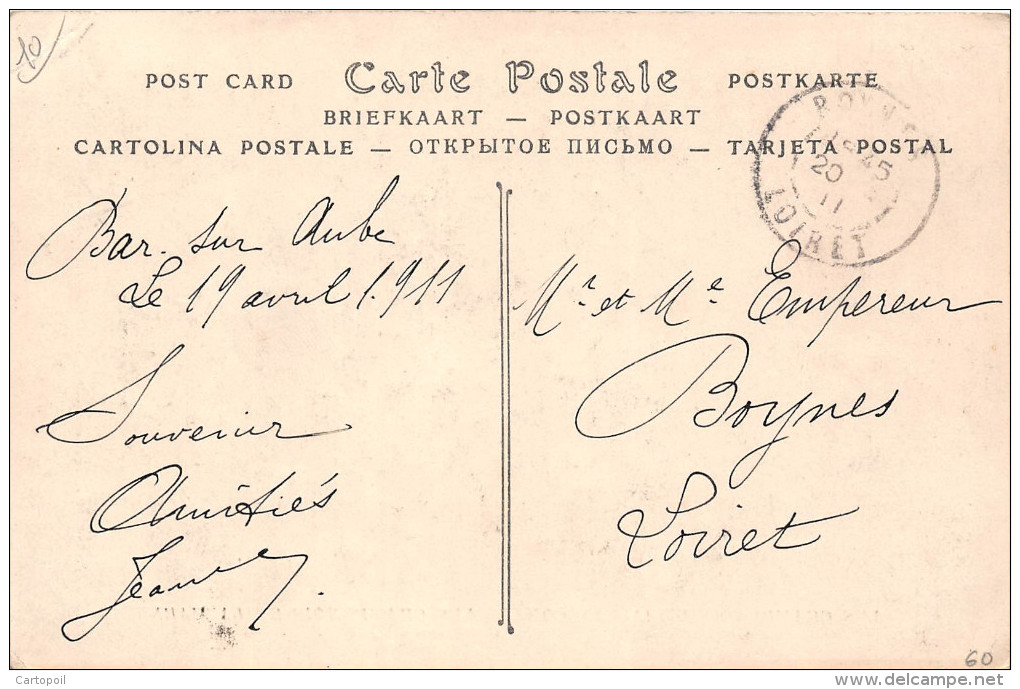 10
POST CARD Carte Postale POSTKARTE
BRIEFKAART — POSTKAART
CARTOLINA POSTALE — ОТКРЫТОЕ ПИСЬМО — TARJETA POSTAL
BOYNES
45
20
11
LOIRET
Bar-sur Aube
Le 19 avril 1911
Souvenir
Amitiés
Jeanne
Mr et Me Empereur
Boynes
Loiret
60
Cartopoil